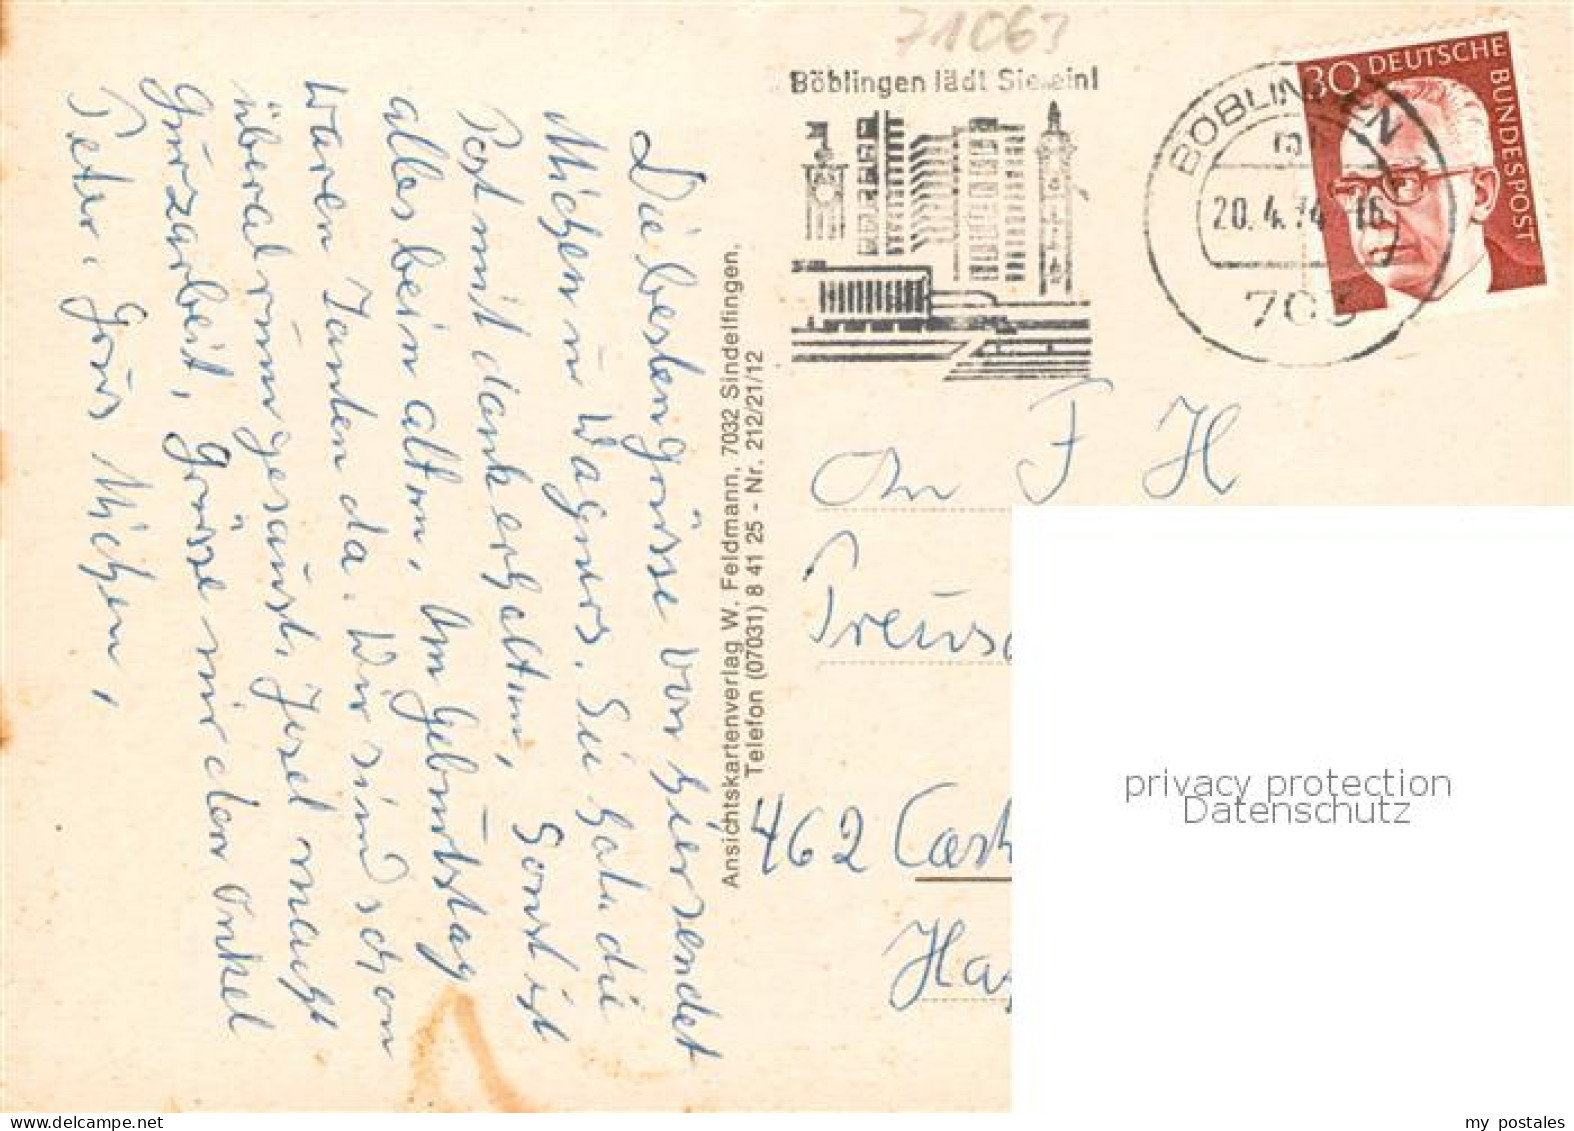 71063
Böblingen lädt Sie ein!
BÖBLINGEN
m
20.4.74-16
703
30 DEUTSCHE
BUNDESPOST
Die besten Grüsse von hier sendet
Michen u Wagners. Sie hat die
Post mit dank erhalten, Sonst ist
alles beim alten, Am Geburtstag
waren Tanten da. Wir sind schon
überal rumgesaust. Josel macht
Gurzarbeit, Grüsse mir den Onkel
Peter. Grus Michen,
Ansichtskartenverlag W. Feldmann, 7032 Sindelfingen,
Telefon (07031) 8 41 25 - Nr. 212/21/12
An F H
Preus
462 Cast
Ha
privacy protection
Datenschutz
my postales